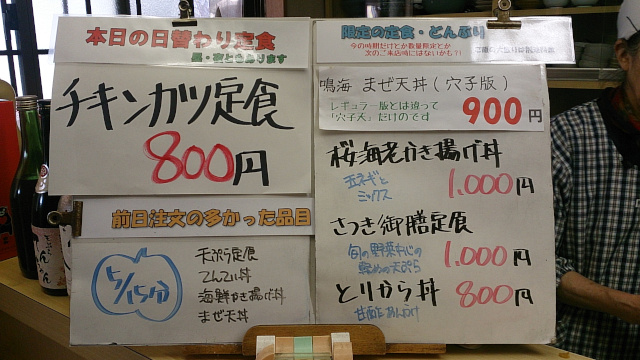 本日の日替わり定食
昼・夜ともあります
チキンカツ定食
800円
前日注文の多かった品目
5/15分
天ぷら定食
てんこい丼
海鮮かき揚げ丼
まぜ天丼
限定の定食・どんぶり
今の時期だけとか数量限定とか
次のご来店時にはないかも?!
鳴海 まぜ天丼(穴子版)
レギュラー版とは違って
「穴子天」だけのです
900円
桜海老かき揚げ丼
玉ネギと
ミックス
1.000円
さつき御膳定食
旬の野菜中心の
1.000円
とりから丼
800円